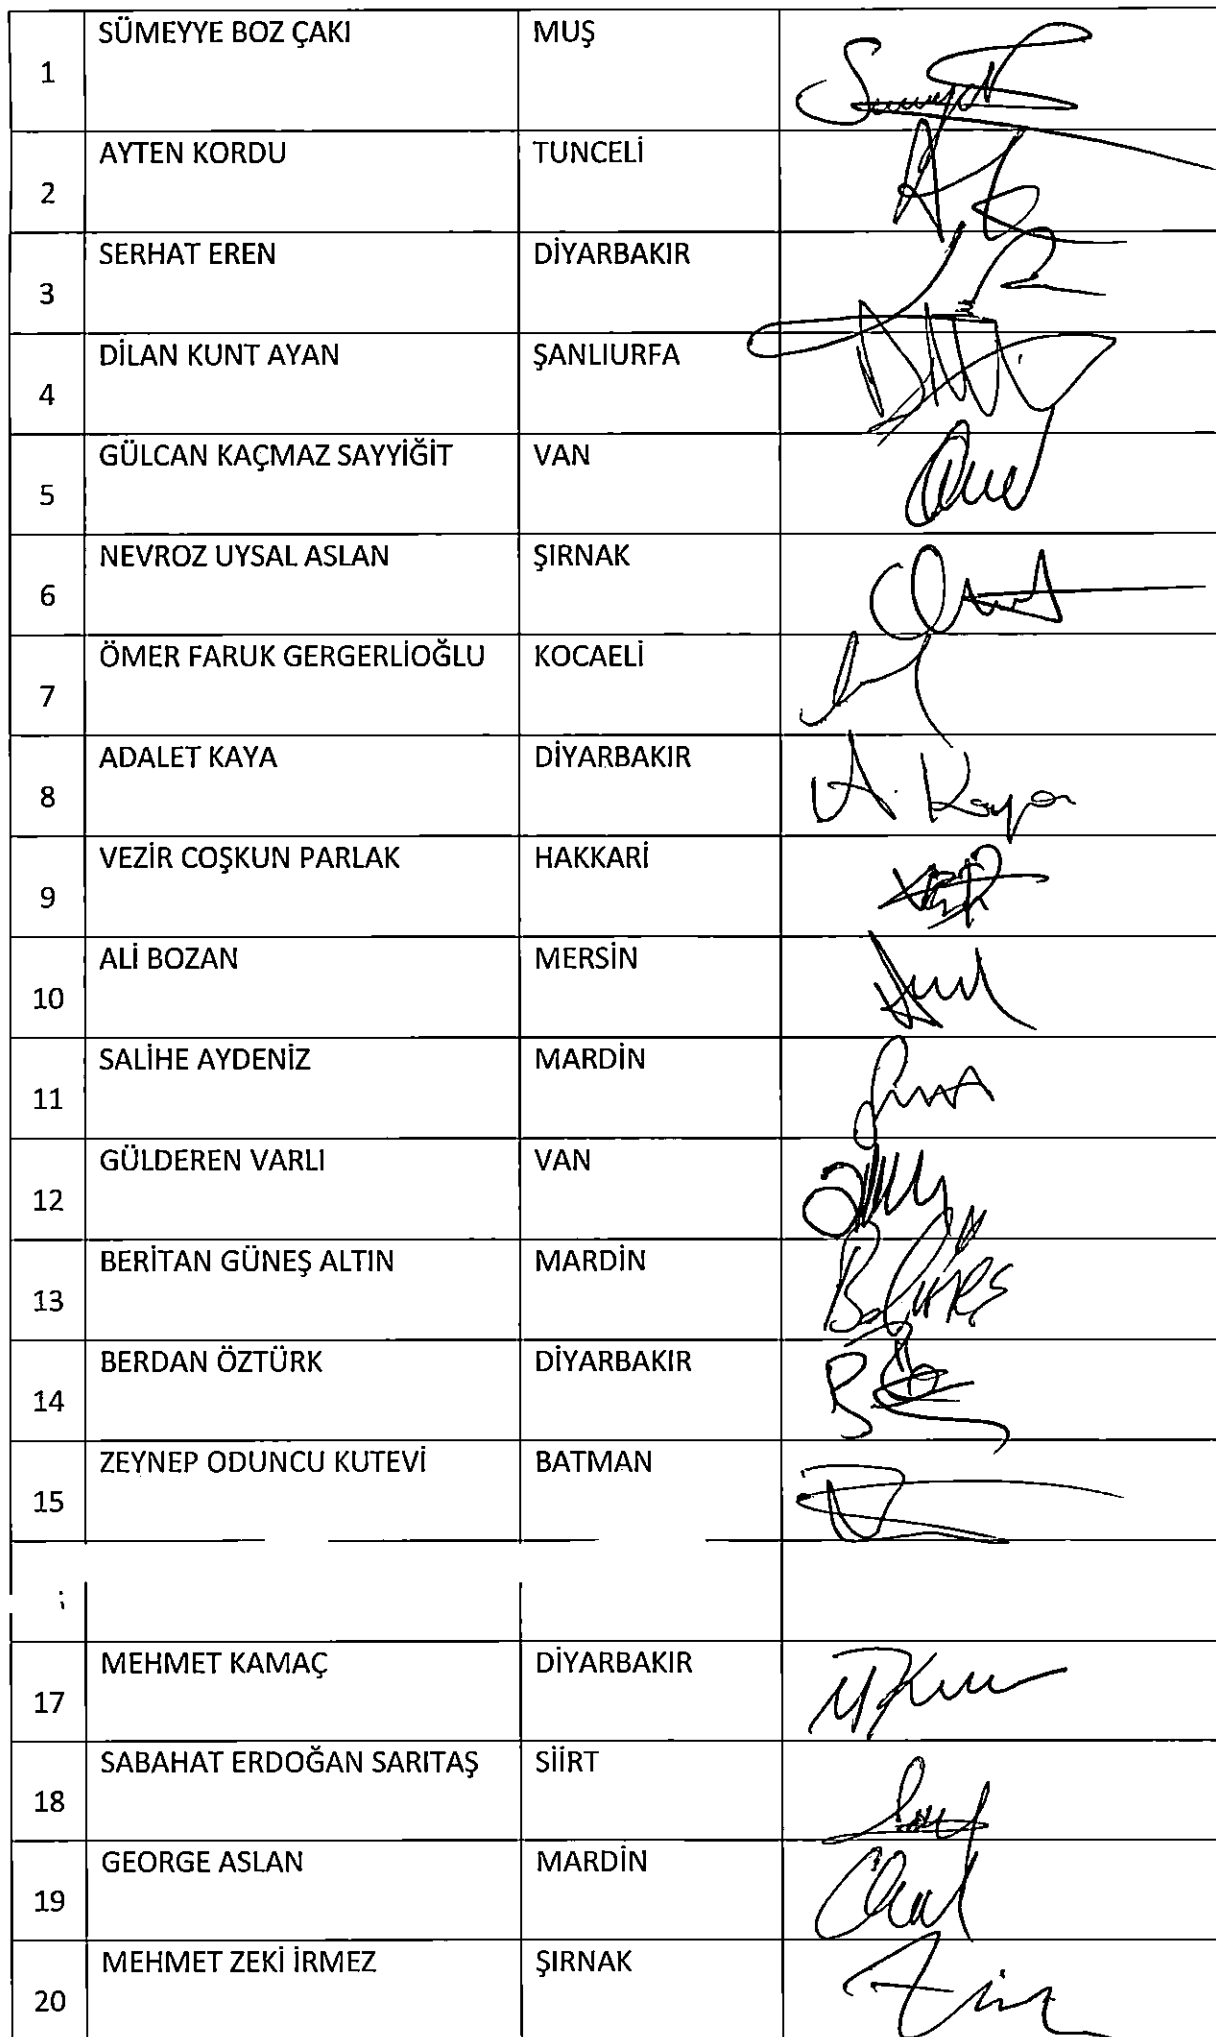 1 SÜMEYYE BOZ ÇAKI MUŞ
2 AYTEN KORDU TUNCELİ
3 SERHAT EREN DİYARBAKIR
4 DİLAN KUNT AYAN ŞANLIURFA
5 GÜLCAN KAÇMAZ SAYYİĞİT VAN
6 NEVROZ UYSAL ASLAN ŞIRNAK
7 ÖMER FARUK GERGERLİOĞLU KOCAELİ
8 ADALET KAYA DİYARBAKIR A. Kaya
9 VEZİR COŞKUN PARLAK HAKKARİ
10 ALİ BOZAN MERSİN
11 SALİHE AYDENİZ MARDİN
12 GÜLDEREN VARLI VAN
13 BERİTAN GÜNEŞ ALTIN MARDİN
14 BERDAN ÖZTÜRK DİYARBAKIR
15 ZEYNEP ODUNCU KUTEVİ BATMAN
17 MEHMET KAMAÇ DİYARBAKIR
18 SABAHAT ERDOĞAN SARITAŞ SİİRT
19 GEORGE ASLAN MARDİN
20 MEHMET ZEKİ İRMEZ ŞIRNAK